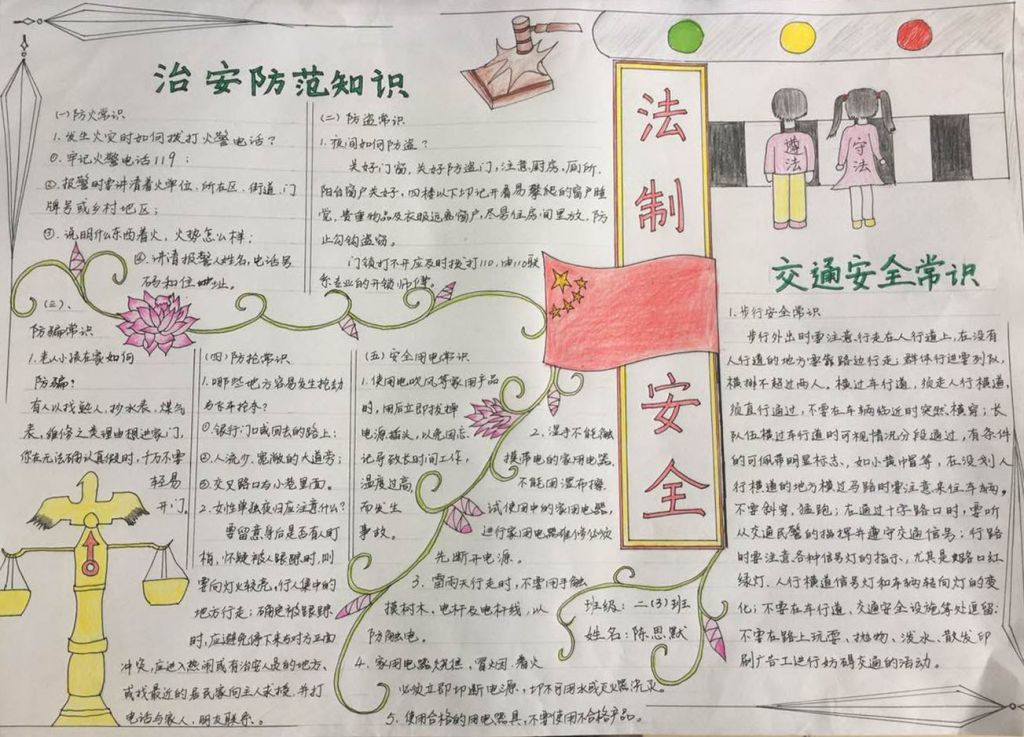 治安防范知识
(一)防火常识
1.发生火灾时如何拨打火警电话?
①.牢记火警电话119;
②.报警时要讲清着火单位、所在区、街道、门
牌号或乡村地区;
③.说明什么东西着火,火势怎么样;
④.讲清报警人姓名、电话号
码和住址。
(二)防盗常识
1.夜间如何防盗?
关好门窗、关好防盗门,注意厨房,厕所、
阳台窗户关好,四楼以下切记开着易攀爬的窗户睡
觉,贵重物品及衣服远离窗户,尽量往房间里放,防
止勾钩盗窃。
门锁打不开应及时拨打110,由110联
系专业的开锁师傅。
(三)、
防骗常识
1.老人小孩在家如何
防骗?
有人以找熟人、抄水表、煤气
表、维修之类理由想进家门,
你在无法确认真假时,千万不要
轻易
开门。
(四)防抢常识
1.哪些地方容易发生抢劫
与飞车抢夺?
①.银行门口或回去的路上;
②.人流少、宽敞的大道旁;
③.交叉路口与小巷里面。
2.女性单独夜归应注意什么?
要留意身后是否有人盯
梢,怀疑被人跟踪时,则
要向灯火较亮,行人集中的
地方行走;确定被跟踪
时,应避免停下来与对方正面
冲突,应进入热闹或有治安人员的地方、
或找最近的居民家向主人求援,并打
电话与家人,朋友联系。
(五)安全用电常识
1.使用电吹风等家用产品
时,用后立即拔掉
电源插头,以免因忘
记导致长时间工作,
温度过高
而发生
事故。
2、湿手不能触
摸带电的家用电器,
不能用湿布擦
试使用中的家用电器,
进行家用电器维修必须
先断开电源。
3.雷雨天行走时,不要用手触
摸树木、电杆及电杆线,以
防触电。
4.家用电器烧焦、冒烟、着火
必须立即切断电源,切不可用水或灭火器浇灭。
5.使用合格的用电器具,不要使用不合格产品。
法制安全
班级:二(3)班
姓名:陈思默
遵法
守法
交通安全常识
1.步行安全常识
步行外出时要注意,行走在人行道上,在没有
人行道的地方要靠路边行走;群体行进要列队,
横排不超过两人。横过车行道,须走人行横道,
须直行通过,不要在车辆临近时突然横穿;长
队伍横过车行道时可视情况分段通过,有条件
的可佩带明显标志,如小黄帽等,在没划人
行横道的地方横过马路时要注意来往车辆,
不要斜穿,猛跑;在通过十字路口时,要听
从交通民警的指挥并遵守交通信号;行路
时要注意各种信号灯的指示,尤其是路口红
绿灯,人行横道信号灯和车辆转向灯的变
化;不要在车行道、交通安全设施等处逗留;
不要在路上玩耍、抛物、泼水、散发印
刷广告工进行妨碍交通的活动。